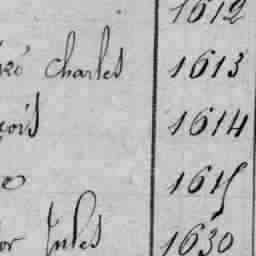 1612
Charles 1613
çois 1614
o 1615
or Jules 1630